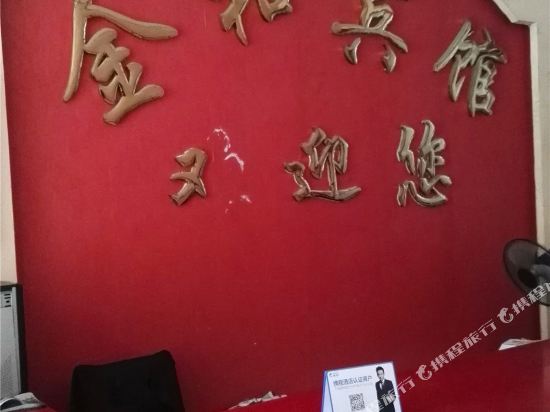 金 宾馆
又 迎 您
携程酒店认证商户
携程旅行
携程旅行